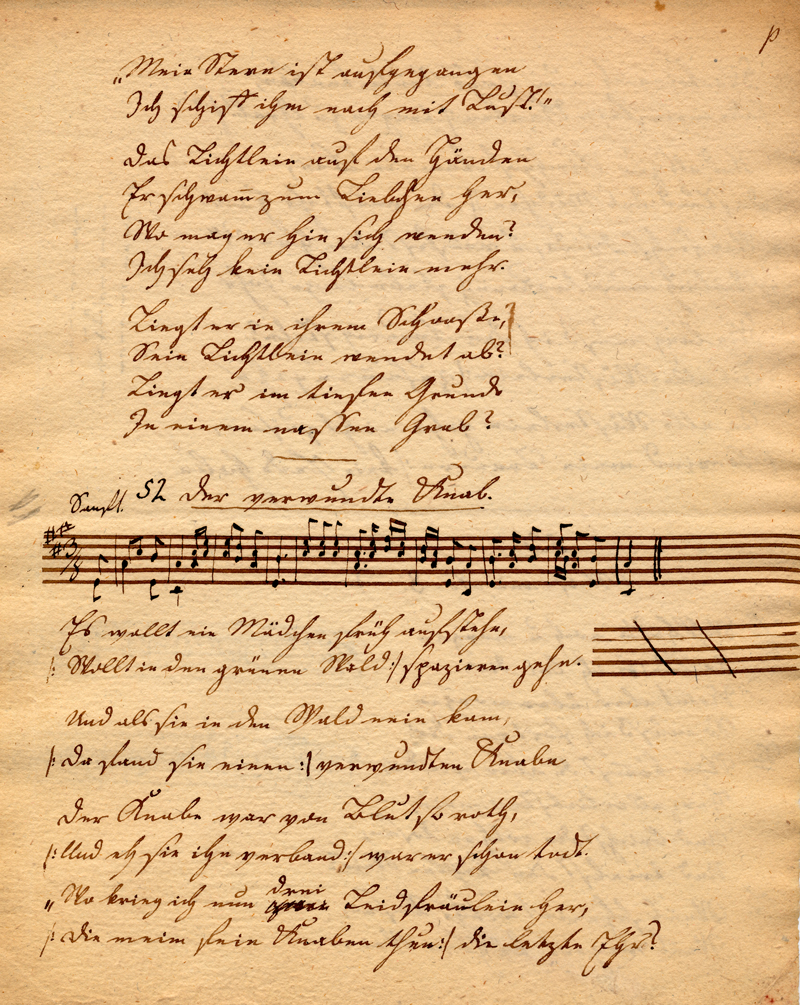 p
„Mein Stern ist aufgegangen
Ich schiff ihm nach mit Lust!"
Das Lichtlein auf den Händen
Er schwam̄ zum Liebchen her,
Wo mag er hin sich wenden?
Ich seh kein Lichtlein mehr.
Liegt er in ihrem Schooße,
Sein Lichtlein wendet ab?
Liegt er im tiefen Grunde
In einem nassen Grab?
Sanft. 52 Der verwundte Knab.
3/8
Es wollt ein Mädchen früh aufstehn,
/: Wollt in den grünen Wald :/ spazieren gehn.
Und als sie in den Wald nein kam,
/: Da fand sie einen :/ verwundten Knabn
Der Knabe war von Blut so roth,
/: Und eh sie ihn verband :/ war er schon todt.
drei
„Wo krieg ich nun Leidfräulein her,
/: Die meim fein Knaben thun :/ die letzte Ehr?